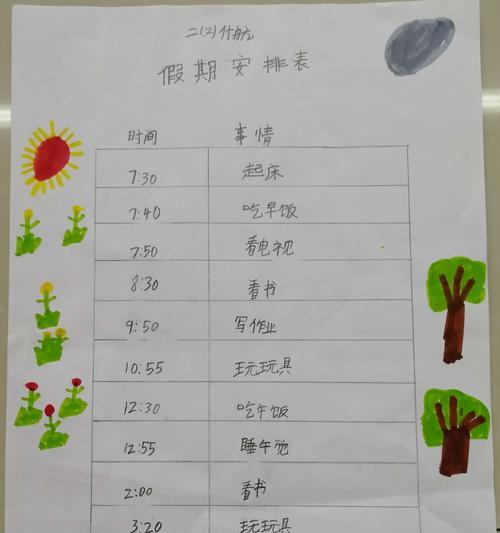 二(2)付航
假期安排表
时间 事情
7:30 起床
7:40 吃早饭
7:50 看电视
8:30 看书
9:50 写作业
10:55 玩玩具
12:30 吃午饭
12:55 睡午觉
2:00 看书
3:20 玩玩具